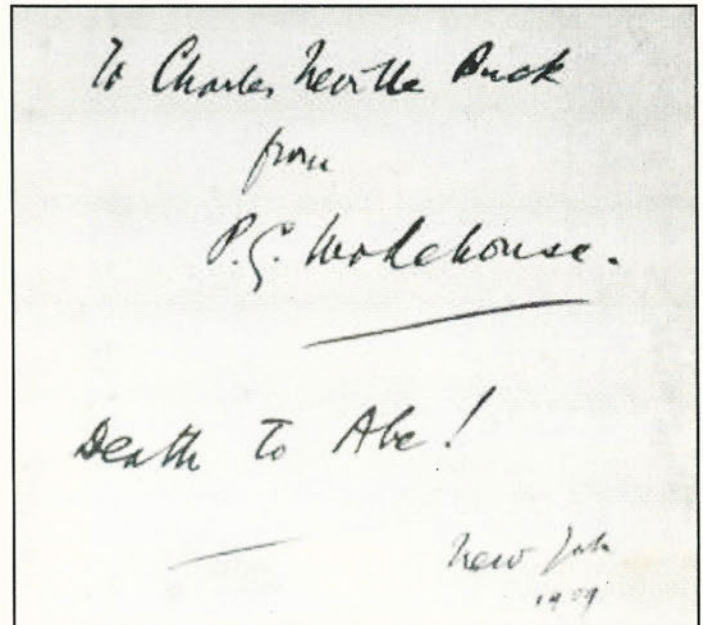 To Charles Neville Buck
from
P.G. Wodehouse.
Death to Abe!
New York
1909